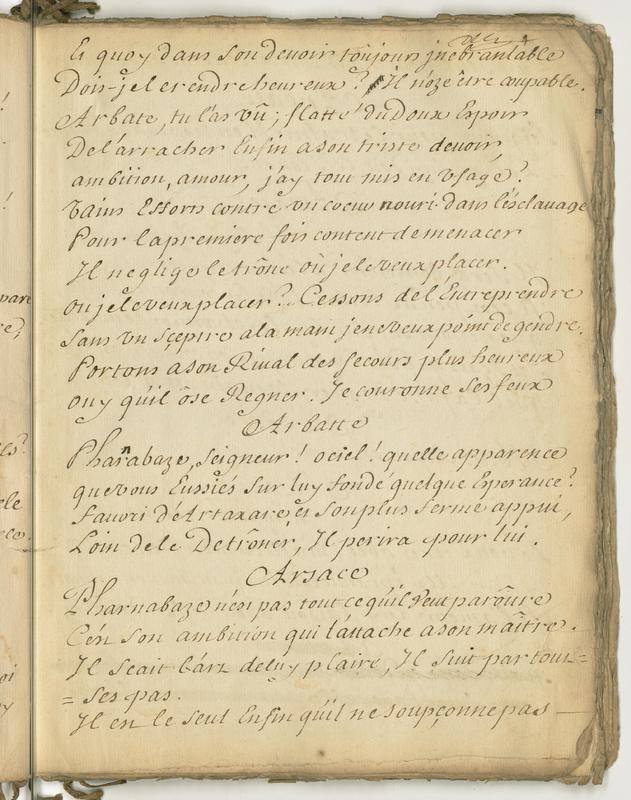 Et quoy dans son devoir toujours jnébranlable
Dois-je le rendre heureux? Il n'oze être coupable.
Arbate, tu l'as vû; flatté du Doux Espoir
De l'arracher Enfin a son triste devoir,
ambition, amour, j'ay tout mis en Usage?
Vains Efforts contre un coeur nouri dans l'ésclauage
Pour la premiere fois content de menacer
Il neglige le trône où je le veux placer.
ou je le veux placer? Cessons de l'Entreprendre
Sans un sçeptre a la main je ne veux point de gendre.
Portons a son Rival des secours plus heureux
Ouy qu'il ôse Regner. Je couronne ses feux
Arbatte
Pharnabaze, seigneur! o ciel! quelle apparence
que vous Eussiés sur luy fondé quelque Esperance?
favori d'Artaxare, et son plus ferme appui,
Loin de le Detrôner, Il perira pour lui.
Arsace
Pharnabaze n'est pas tout ce qu'il veut parôitre
C'est son ambition qui l'attache a son maître.
Il scait l'art de luy plaire, Il suit par tout =
= ses pas.
Il est le seul Enfin qu'il ne soupçonne pas
pare
re,